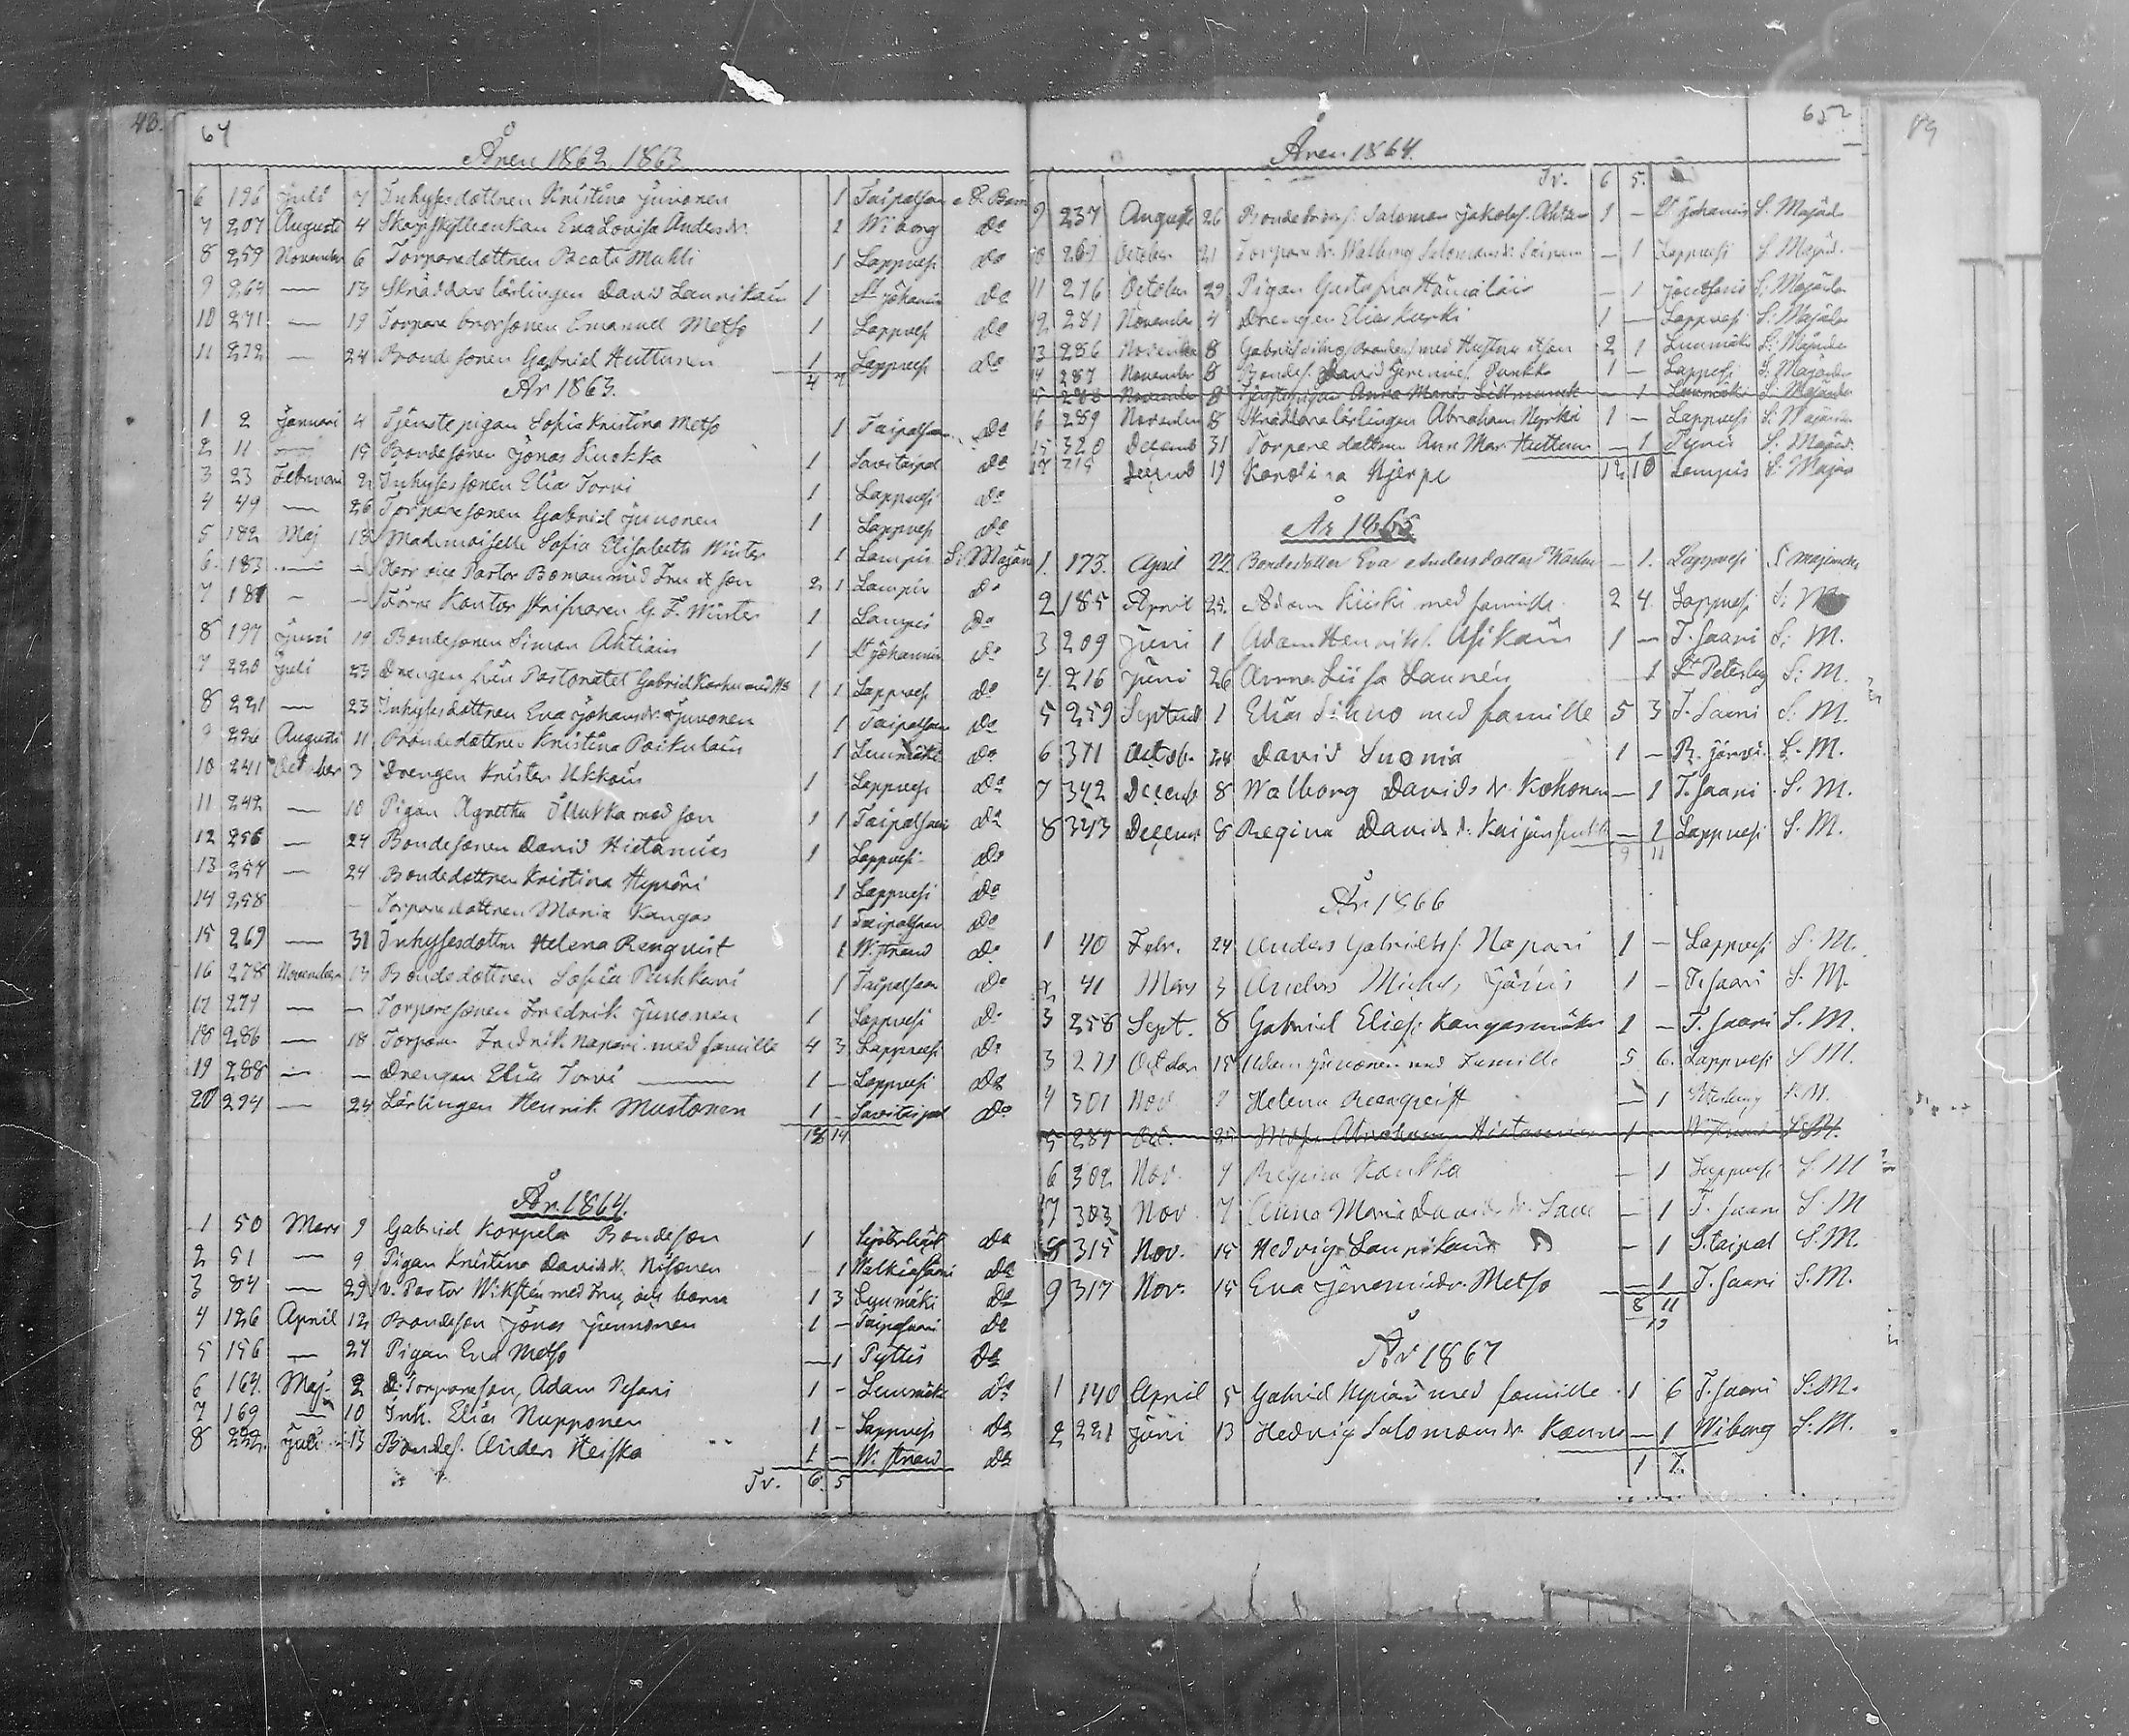 64
Åren 1862 1863
6 196 Juli 7 Inhyses dottren Kristina Juvonen 1 Taipalsaari
7 207 Augusti 4 Eva Lovisa Andersdr. 1 Wiborg do
8 259 November 6 Torparedottren Beata Muhli 1 Lappvesi do
9 264 — 13 Skräddare lärlingen David Lannikain 1 St Johannis do
10 271 — 19 Torpare brorsonen Emanuel Metso 1 Lappvesi do
11 272 — 24 Bondesonen Gabriel Huttunen 1 Lappvesi do
4 7
År 1863.
1 2 Januari 4 Tjenstepigan Sofia Kristina Metso 1 Taipalsaari do
2 11 19 Bondesonen Jonas Kuokka 1 Savitaipal do
3 23 Februari 2 Inhyses sonen Elias Torvi 1 Lappvesi do
4 49 — 26 Torparesonen Gabriel Juvonen 1 Lappvesi do
5 182 Maj 18 Mademoiselle Sofia Elisabeth Winter 1 Lampis S: Majän
6 183 — — Herr vice Pastor Boman med Fru & son 2 1 Lampis do
7 181 — — Förre Kantor G. F. Winter 1 Lampis do
8 197 Juni 19 Bondesonen Simon Ahtiain 1 St Johannis do
7 220 Juli 23 Drengen från Pastoratet Gabriel Karhu med H 1 1 Lappvesi do
8 221 — 23 Inhyses dottren Eva Johansdr. Juvonen 1 Taipalsaari do
9 226 Augusti 11 Bondedottren Kristina Poikulain 1 Luumäki do
10 241 October 3 Drengen Krister Ukkoin 1 Lappvesi do
11 242 — 10 Pigan Agneta Mukka med son 1 1 Taipalsaari do
12 256 — 24 Bondesonen David Hietamies 1 Lappvesi do
13 257 — 24 Bondedottren Kristina Hyväri 1 Lappvesi do
14 258 — Torparedottren Maria Kangas 1 Taipalsaari do
15 269 — 31 Inhysesdottren Helena Renqvist 1 W. strand do
16 278 November 13 Bondedottren Sofia Puhkari 1 Taipalsaari do
17 279 — — Torparesonen Fredrik Juvonen 1 Lappvesi do
18 286 — 18 Torparen Fredrik Napari med famille 4 3 Lappvesi do
19 288 — — Drengen Elias Torvi — 1 — Lappvesi do
20 294 — 24 Lärlingen Henrik Mustonen 1 - Savitaipal do
18 14
År 1864.
1 50 Mars 9 Gabriel Korpela Bondeson 1 do
2 51 — 9 Pigan Kristina Davidsdr. Nisonen 1 Walkiasaari do
3 84 — 29 v. Pastor Wikstén med Fru och barn 1 3 Luumäki do
4 126 April 12 Bondeson Jonas Juvonen 1 — Taipalsaari do
5 156 — 27 Pigan Eva Metso — 1 Pyttis do
6 164. Maj 2 Torpareson, Adam Pesari 1 - Luumäki do
7 169 — 10 Inh. Elias Nupponen 1 - Lappvesi do
8 222 Juli 13 Bondes. Anders Heiska 1 — W. strand do
Tr. 6. 5
65
Åren 1864.
Tr. 6 5.
9 237 Augusti 26 Salomon Jakobs. Ahtia 1 — St Johannis S. Majäde
10 269 October 21 Torparedr. Walborg Salomonsdr. — 1 Lappvesi S. Majäd.
11 276 October 29 Pigan Gustafva Hämäläin — 1 S. Majäde
12 281 November 4 Drengen Elias Kurki 1 — Lappvesi S. Majäde
13 286 November 8 Gabriel med Hustru & son 2 1 Luumäki S. Majäde
14 287 November 8 Bondes. David Jeremies. Punkka 1 — Lappvesi S. Majäde
15 288 November 8 Tjenstepigan Anna Maria — 1 Luumäki S. Majäde
16 289 November 8 Skräddare lärlingen Abraham Nyrki 1 — Lappvesi S. Majäde
15 320 Decemb 31 Torpare dottren Ann Mar. Huttun — 1 Pyttis S. Majäd.
17 319 Decemb 19 Karolina Hjerpe 12 10 Lampis S. Majäd
År 1865
1. 173. April 22. Bondedotter Eva Andersdotter Karhu — 1. Lappvesi S Majäde
2 185 April 25. Adam Kiiski med famille 2 4. Lappvesi S: M
3 209 Juni 1 Adam Henriks. Asikain 1 — T. saari S: M.
4. 216 Juni 26 Anna Liisa Launén 1 St Petersbg S: M.
5 259 Septemb 1 Elias Sihvo med famille 5 3 T. saari S: M.
6 311 Octob. 24 David Suonia 1 — R. järvi S. M.
7 342 Decemb 8 Walborg Davidsdr. Kohonen — 1 T. saari S. M.
8 343 Decemb 8 Regina Davidsdr. — 1 Lappvesi S. M.
9 11
År 1866
1 40 Febr. 24 Anders Gabriels. Napari 1 — Lappvesi S. M.
2 41 Mars 3 Anders Michels. 1 — T. saari S. M.
3 258 Sept. 8 Gabriel Elies. Kangasmäki 1 — T. saari S. M.
3 271 October 15 Adam Juvonen med Famille 5 6. Lappvesi S M.
4 301 Nov. 7 Helena Reenqvist — 1 Petersburg S. M.
5 287 Oct. 25 Abraham Hietamies 1 - W. strand S. M.
6 302 Nov. 7 Regina Kaukka — 1 Lappvesi S. M
7 303 Nov. 7 Anna Maria Davidsdr. — 1 T. saari S. M
8 315 Nov. 15 Hedvig Lannikain — 1 S. taipal S. M.
9 317 Nov. 15 Eva Jeremiedr. Metso — 1 T. saari S. M.
8 11
År 1867
1 140 April 5 Gabriel Hyväri med famille 1 6 T. saari S. M.
2 221 Juni 13 Hedvig Salomonsdr. — 1 Wiborg S. M.
1 7.